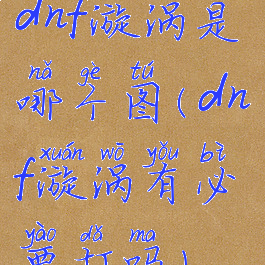 dnf漩涡是
nǎ gè tú
哪个图(dn
xuán wō yǒu bì
f漩涡有必
yào dǎ ma
要打吗)